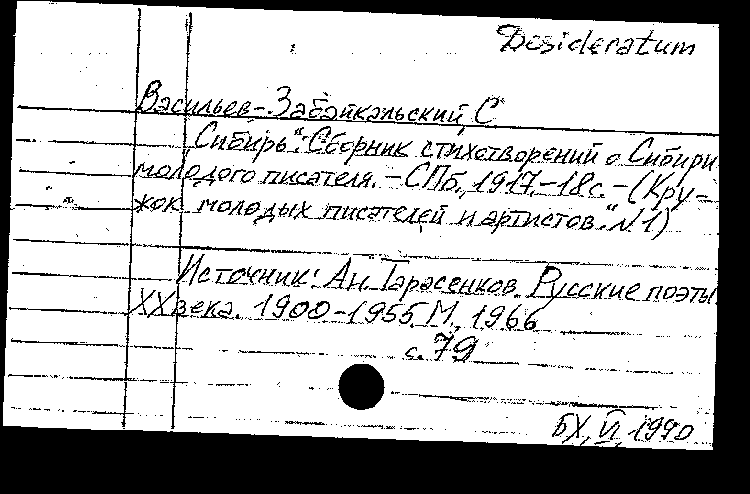 Desideratum
Васильев-Забайкальский, С
„Сибирь“: Сборник стихотворений о Сибири
молодого писателя. – СПб., 1917. – 18 с. – (Кру-
жок молодых писателей и артистов. “№1)
Источник: Ан. Тарасенков. Русские поэты
XX века. 1900-1955. М., 1966
с. 79
БХ, VI, 1990